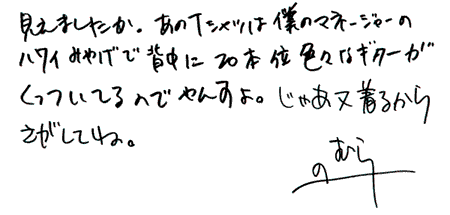 見えましたか。あのTシャツは僕のマネージャーの
ハワイみやげで背中に20本位色々なギターが
くっついてるのでやんすよ。じゃあ又着るから
さがしてね。
のむら